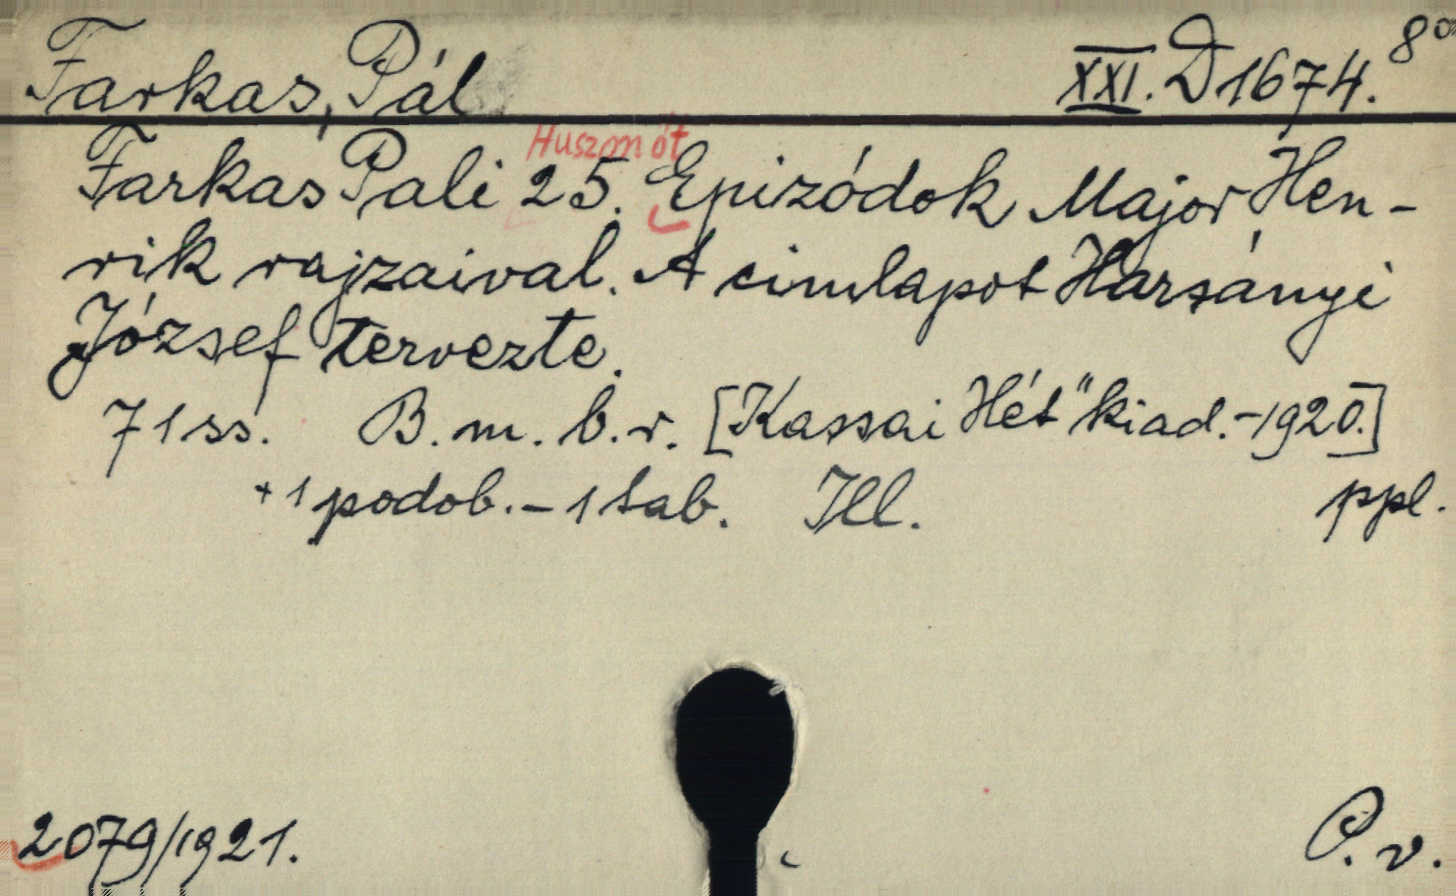 Farkas, Pál XXI. D 1674. 8°
Huszonöt
Farkas Pali 25. Epizódok Major Hen-
rik rajzaival. A cimlapot Harsányi
József tervezte.
71 ss. B. m. b. r. [Kassai Hét" kiad. - 1920.]
+1 podob. - 1 tab. Ill. ppl.
2079/1921. P. v.